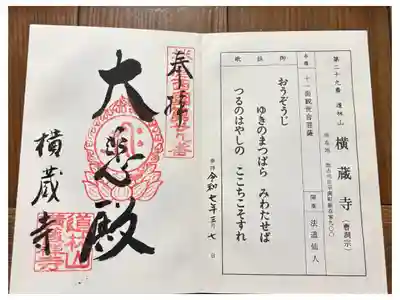 第二十九番 道林山 横蔵寺 (曹洞宗)
本尊 十一面観世音菩薩 開基 法道仙人
御詠歌
おうぞうじ
ゆきのまつばら みわたせば
つるのはやしの ここちこそすれ
令和七年三月七日
奉拝
大悲殿
横蔵寺
道林山
横蔵寺